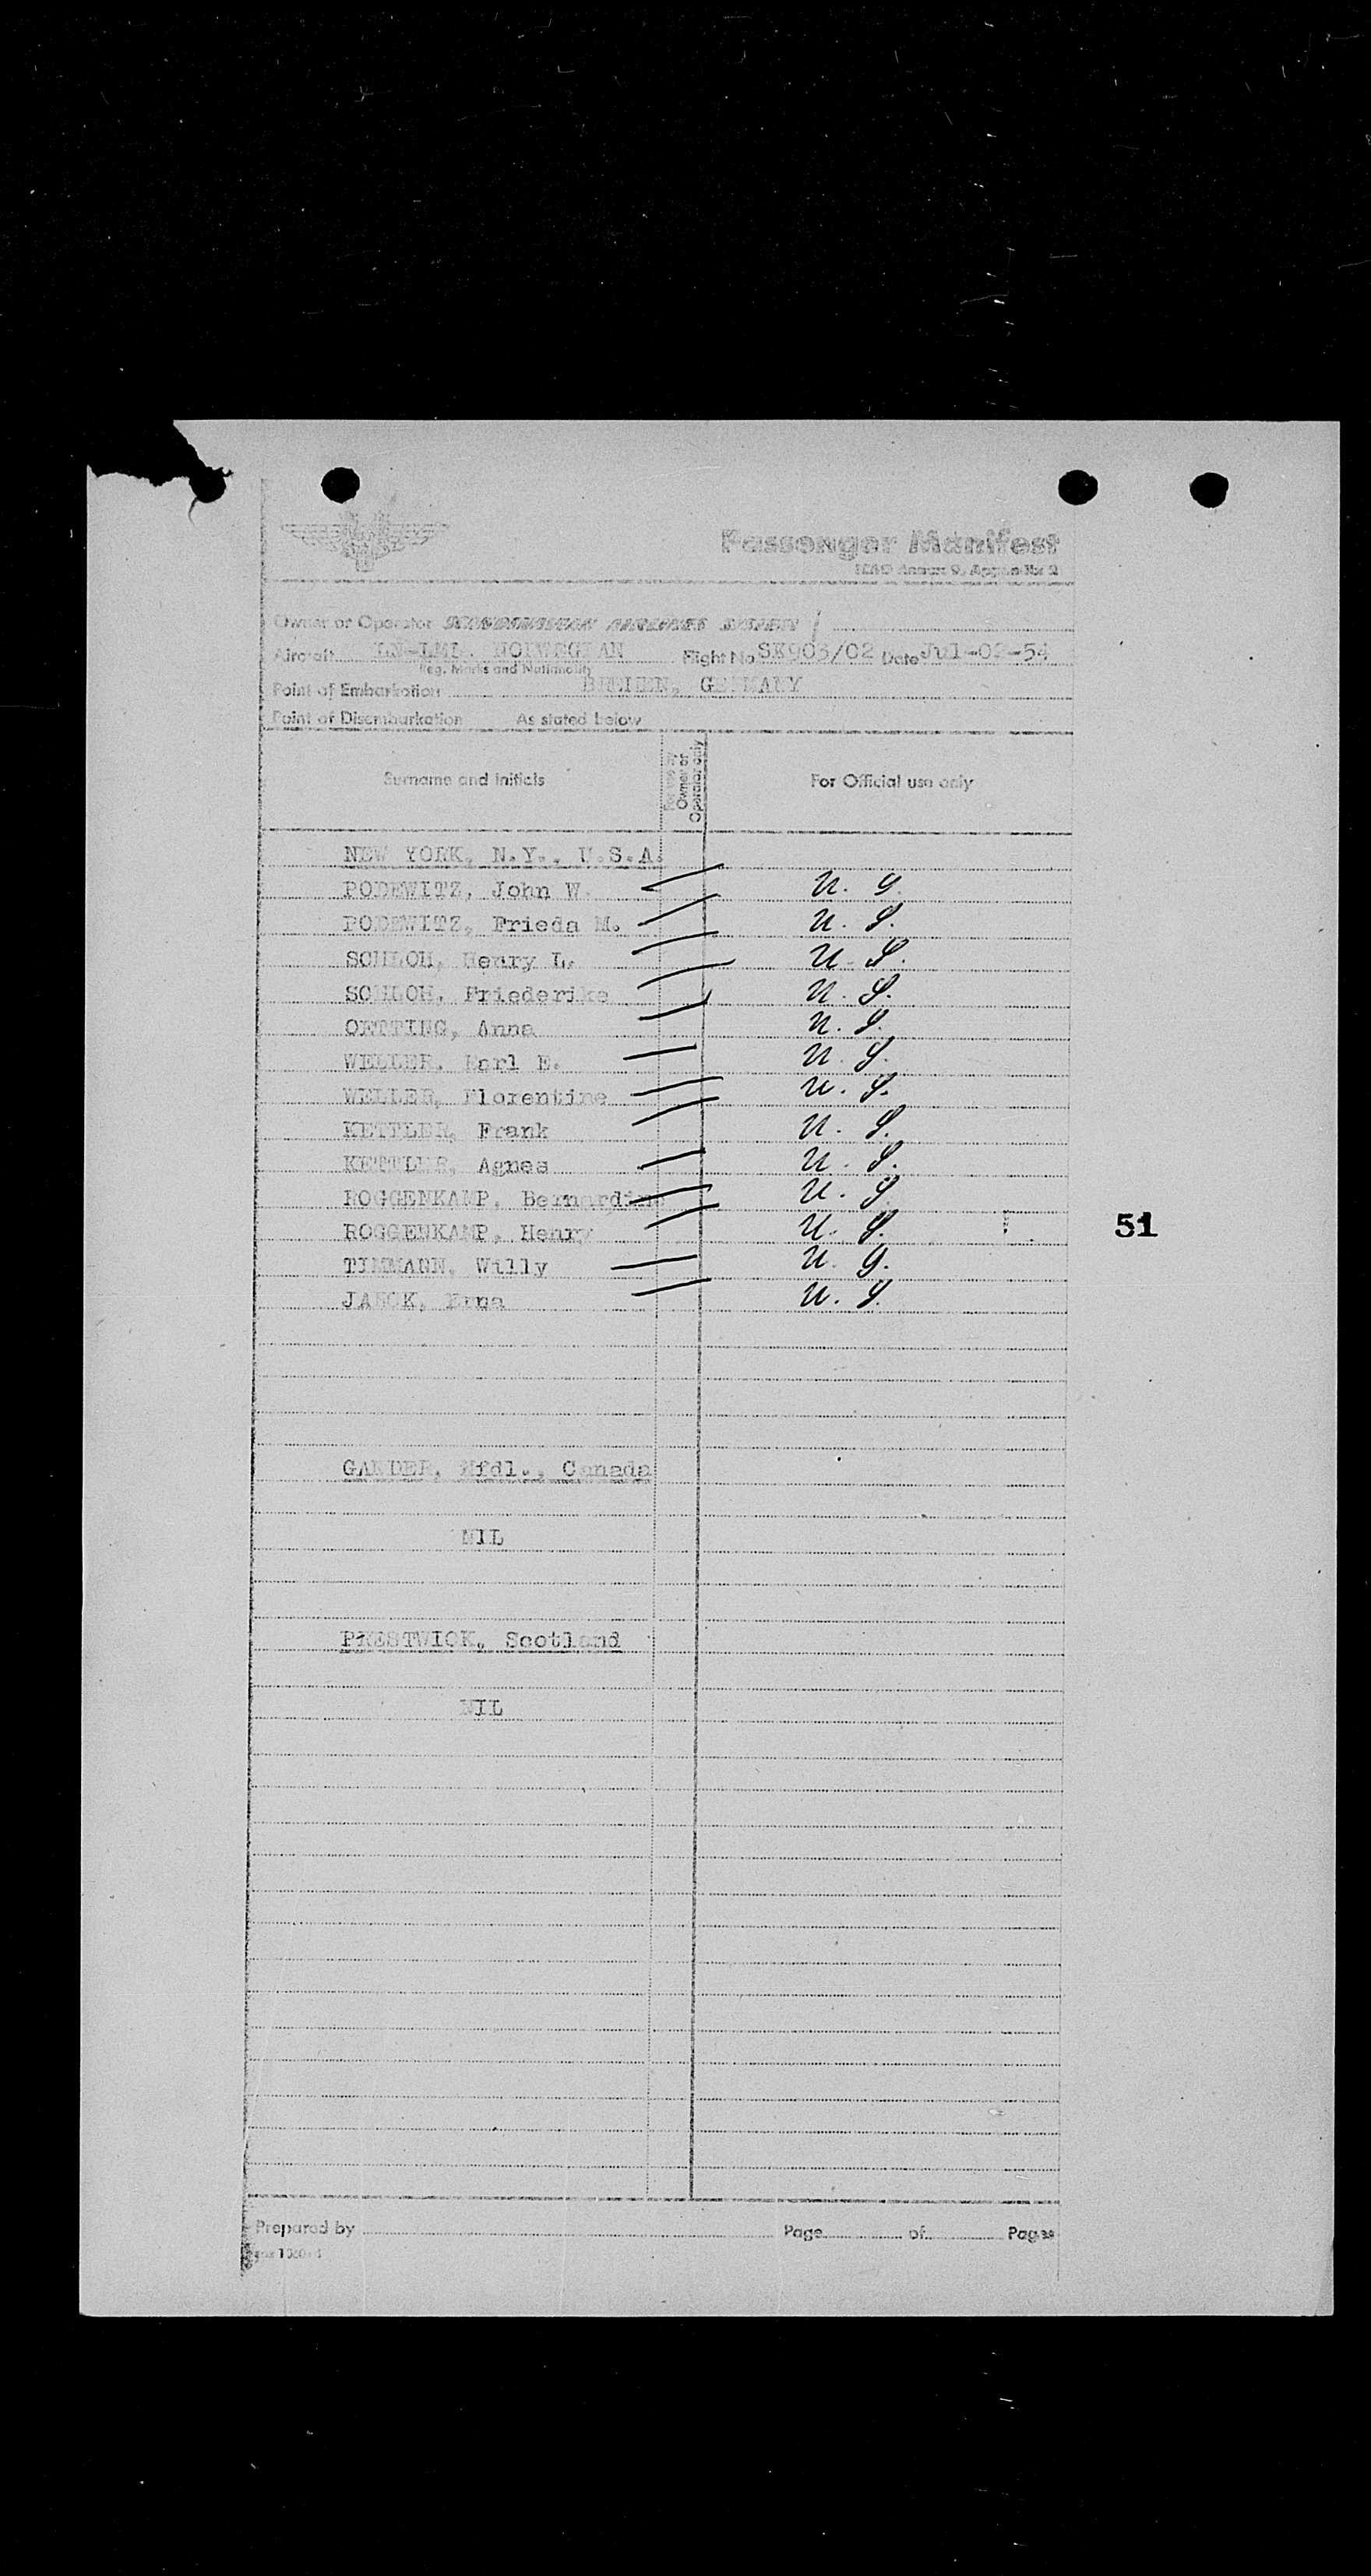 Passenger Manifest
ICAO Annex 9, Appendix 2
Owner or Operator SCANDINAVIAN AIRLINES SYSTEM
Aircraft NORWEGIAN Flight No SK903/02 Date
Reg. Marks and Nationality
Point of Embarkation BREMEN, GERMANY
Point of Disembarkation As stated below
Surname and initials
Owner or
Operator only
For Official use only
NEW YORK, N.Y., U.S.A.
PODEWITZ, John W. U. S.
PODEWITZ, Frieda M. U. S.
SCHLOH, Henry L. U. S.
SCHLOH, Friederike U. S.
OETTING, Anna U. S.
WELLER, U. S.
WELLER, Florentine U. S.
KETTLER, Frank U. S.
KETTLER, Agnes U. S.
ROGGENKAMP, Bernardine U. S.
ROGGENKAMP, Henry U. S.
51
TIMMANN, Willy U. S.
U. S.
GANDER, Nfdl., Canada
NIL
PRESTWICK, Scotland
NIL
Prepared by Page of Pages